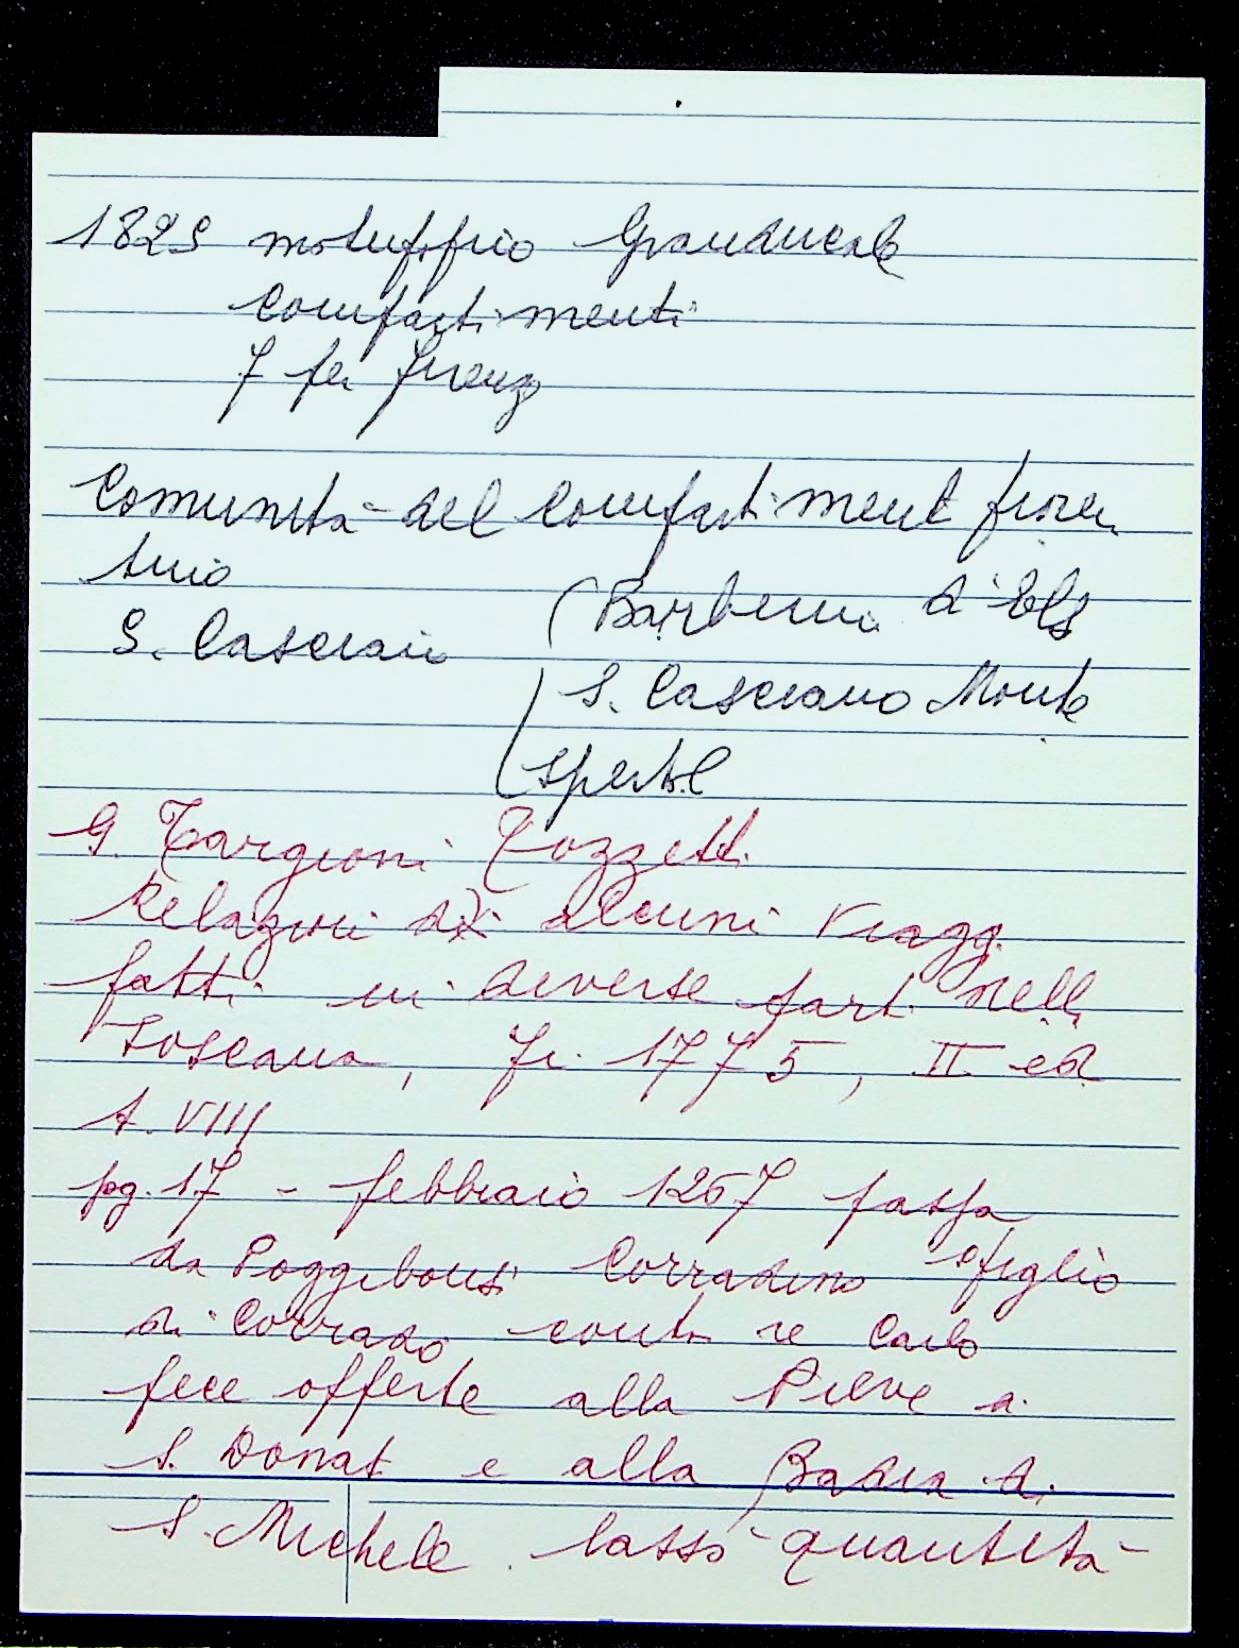 1825 motuproprio Granducale
Compartimenti
7 per Firenz
Comunità del Compartiment fioren
tino
S. Casciano
(Barberin d'Els
S. Casciano Monte
spertol
G. Targioni Tozzett
Relazioni di alcuni viagg
fatti in diverse part nell
Toscana, Fi. 1775, II ed
t. VIII
pg. 17 - febbraio 1267 passa
da Poggibonsi Corradino figlio
di Corrado contr re Carlo
fece offerte alla Pieve a
S. Donat e alla Badia di
S. Michele. lassò quantità